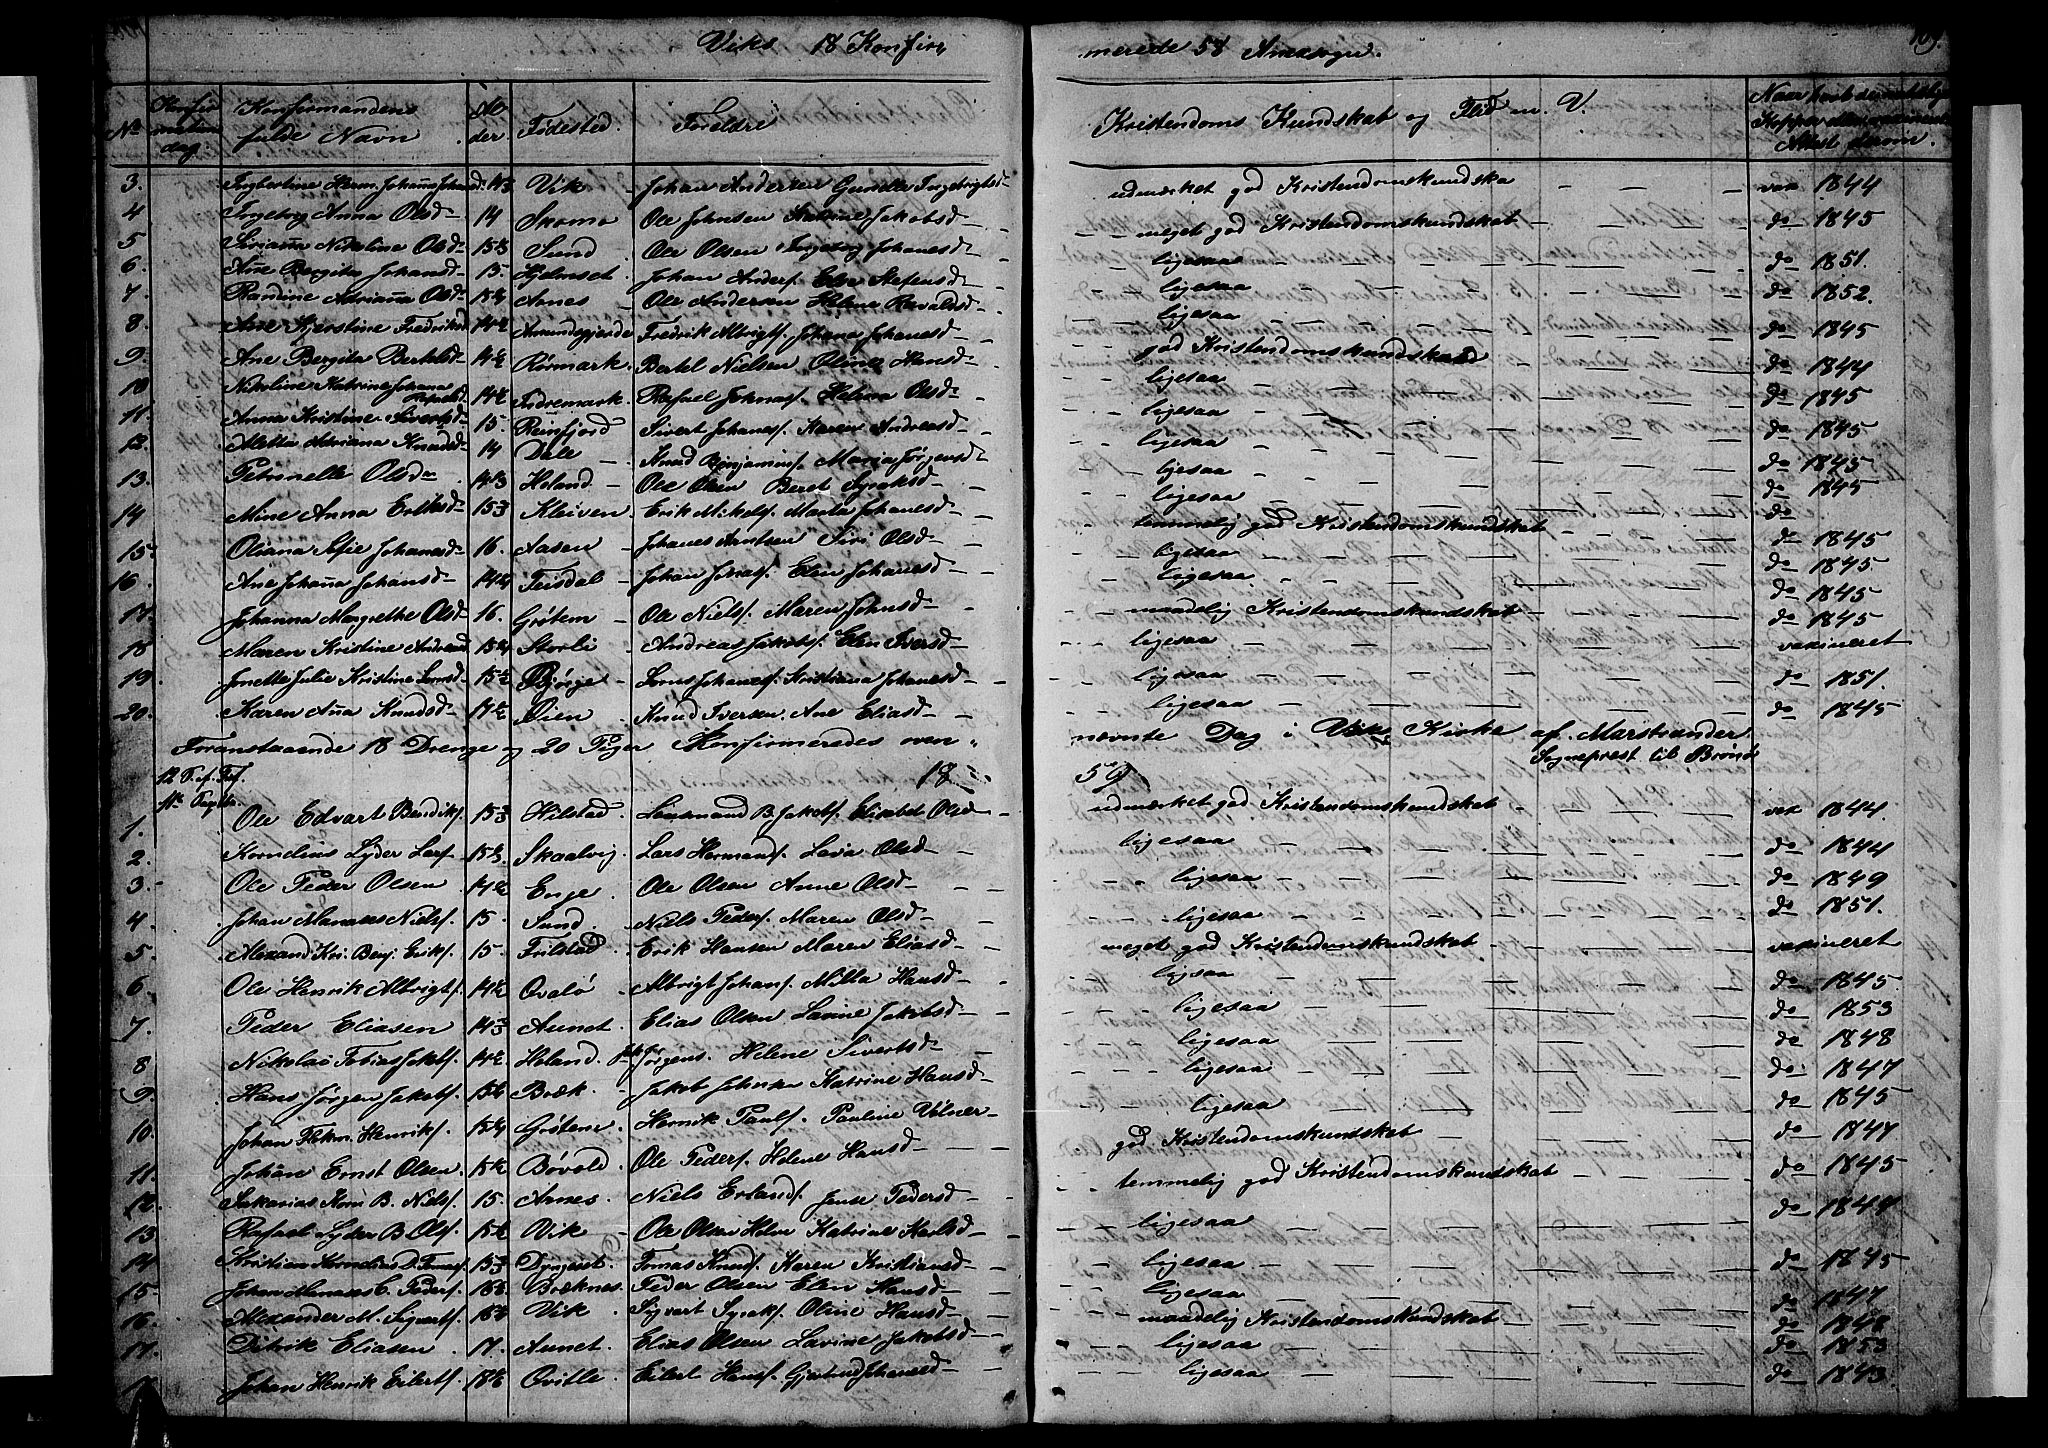 Viks 18 Konfir, merede 58 Annexsogn.
109.
No Konfirmations dag. Konfirmandens fulde Navn Alder. Fødested. Foreldre Kristendoms Kundskab og Flid m. V. Naar Kopper Attest derom.
3. Ingbertine Johan̄a 14 3/4 Vik Johan Andersen Gunilla udmærket god Kristendomskundska vax 1844
4 Ingebrg Anna Olsd 14 Skomo Ole Johnsen Katrine Jakobsd meget god Kristendomskundskab do 1845
5 Nikoline Olsd Sund Ole Olsen Ingebrg Johanesd ligesaa do 1851.
6. Ane Bergita Johansd 15 Hjelmset Johan Anders. Elen ligesaa do 1852.
7. Randine Adrian̄a Olsd Aanes Ole Andersen Helena ligesaa do 1845
8. Ane Kjerstine Fredriksd 14 1/2 Amundsgjerde Fredrik Albrigts. Johana Johanesd god Kristendomskundskab do 1844
9. Ane Bergita Bertelsd 14 1/2 Rørmark Bertel Nielsen Oline Hansd ligesaa do 1845
10 Nikoline Katrine Johana Rafaelsd 14 1/2 Indremark Rafael Johnas. Helena Olsd ligesaa do 1845
11. Anna Kristine Sivertsd 15 Reinfjord Sivert Johanes. Karen Andreasd ligesaa do 1845
12. Metta Adriana Knudsd 14 Dale Knud Benjamins. Maria Jørgensd ligesaa do 1845
13. Petronelle Olsd 14 3/4 Heland Ole Olsen Beret ligesaa do
14 Mine Anna Eriksd 15 3/4 Kleiven Erik Mikels. Marta Johanesd temmelig god Kristendomskundskab do 1845
15 Oliana Sofie Johanesd 16. Aasen Johanes Arntsen Siri Olsd ligesaa do 1845
16. Ane Johan̄a Johansd Teisdal Johan Jonas. Elen Johanesd ligesaa do 1845
17. Johanna Margrethe Olsd 16. Grøtem Ole Niels. Maren Johnsd maadelig Kristendomskundskab do 1845
18 Maren Kristine Andreasd Storli Andreas Jakobs. Elen Iversd ligesaa vaxineret
19. Jenette Julie Kristine 15 1/2 Bjørge Johanes. Kristiana Johanesd ligesaa do 1851.
20. Karen An̄a Knudsd 14 1/2 Øien Knud Iversen. Ane Eliasd ligesaa do 1845
Foranstaaende 18 Drenge og 20 Piger Konfirmeredes oven, nævnte Dag i Viks Kirke af Marstrander
Sogneprest til Brønø
12 S. af Tref. 18 59
1. Ole Edvart Bendiks. 15 3/4 Hilstad Lensmand B. Jakobs. Elisabet Olsd udmærket god Kristendomskundskab vax 1844.
2 Kornelius Lyder Lars. Skaalvig. Lars Hermans. Lava Olsd ligesaa do 1844
3. Ole Peder Olsen 14 1/2 Enge. Ole Olsen Anne Olsd ligesaa do 1849
4. Johan Manases Niels. 15. Sund Niels Peders. Maren Olsd ligesaa do 1851.
5 Alexand Kri. Benj. Eriks. 15. Trilstad Erik Hansen Maren Eliasd meget god Kristendomskundskab vaxineret
6. Ole Henrik Albrigts. 14 1/2 Qvalø Albrigt Johans. Milla Hansd ligesaa do 1845
7. Peder Eliasen 14 3/4 Aunet. Elias Olsen Lavine Jakobsd ligesaa do 1853
8 Nikolai Tobias Jakobs. 14 1/2 Heland. Jak. Jørgens. Helene Sivertsd ligesaa do 1848
9 Hans Jørgen Jakobs. Bæk. Jakob Johnsen Katrine Hansd ligesaa do 1847
10. Johan Henriks. Grøtem Henrik Pauls. Pauline Vilner ligesaa do 1845
11. Johan Ernst Olsen 15 1/2 Bøvold. Ole Peders. Helene Hansd god Kristendomskundskab do 1847
12. Sakarias Korn B. Niels. 15. Aanes. Niels Erlands. Jense Pedersd temmelig god Kristendomskundskab do 1845
13. Rafael Lyder B. Ols. 15 1/2 Vik Ole Olsen Helen Katrine Karlsd ligesaa do 1844
14. Kristian Kornelius D. Tomas. 15 3/4 Tomas Knud. Karen Kristiansd ligesaa do 1845
15. Johan Manases C. Peders. Bræknes. Peder Olsen Elen Hansd ligesaa do 1847
16. Alexander M. Sigvarts. Vik Sigvart Oline Hansd maadelig Kristendomskundskab do 1848
17. Didrik Eliasen 17. Aunet. Elias Olsen Lavine Jakobsd ligesaa do 1853
Johan Henrik Eilerts. 18 1/2 Qvitle Eilert Hans. Gjertrud Johanesd ligesaa do 1843